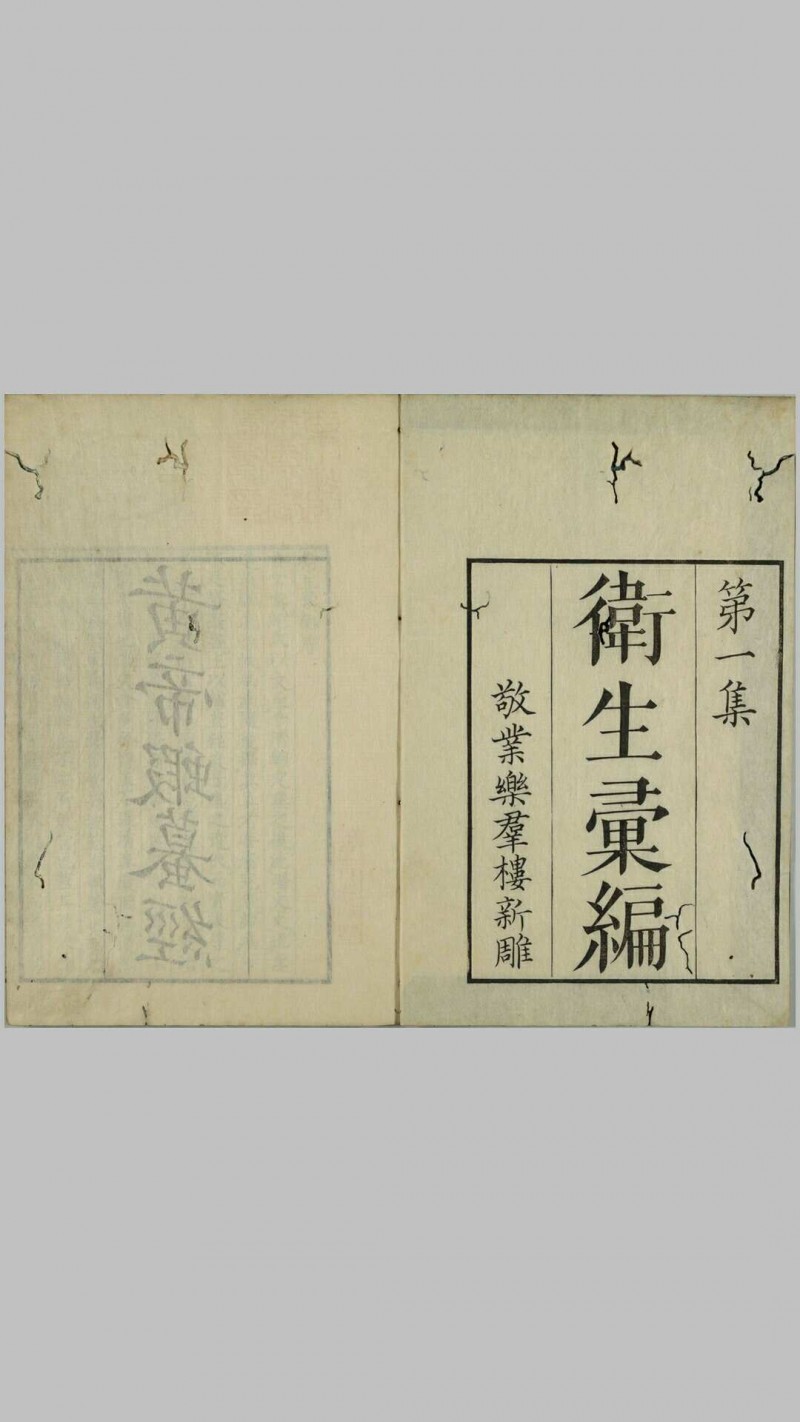 第一集
衛生彙編
敬業樂羣樓新雕
黃帝蝦蟇經